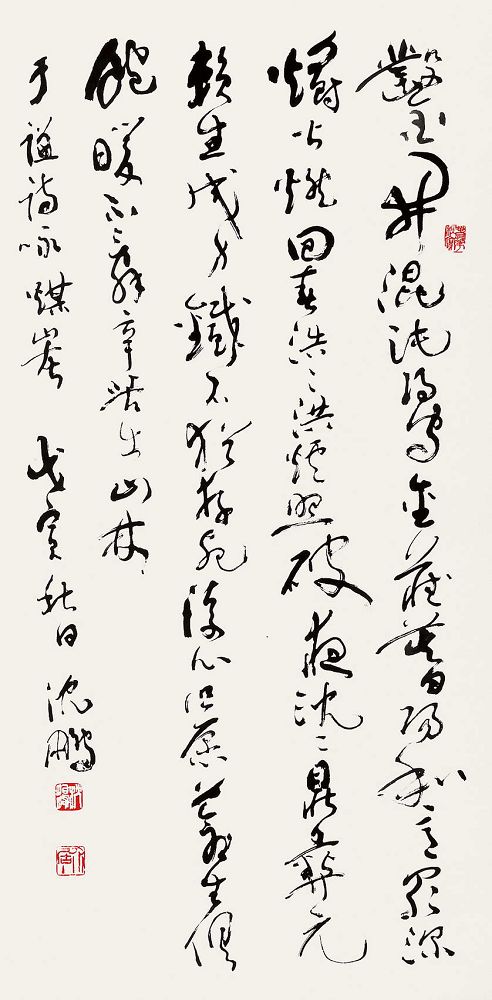 鑿开混沌得烏金藏蓄陽和意最深
爝火燃回春浩浩洪爐照破夜沈沈鼎彝元
賴生成力鐵石猶存死後心但願蒼生俱
飽暖不辞辛苦出山林
于謙詩咏煤炭 戊寅秋日 沈鵬